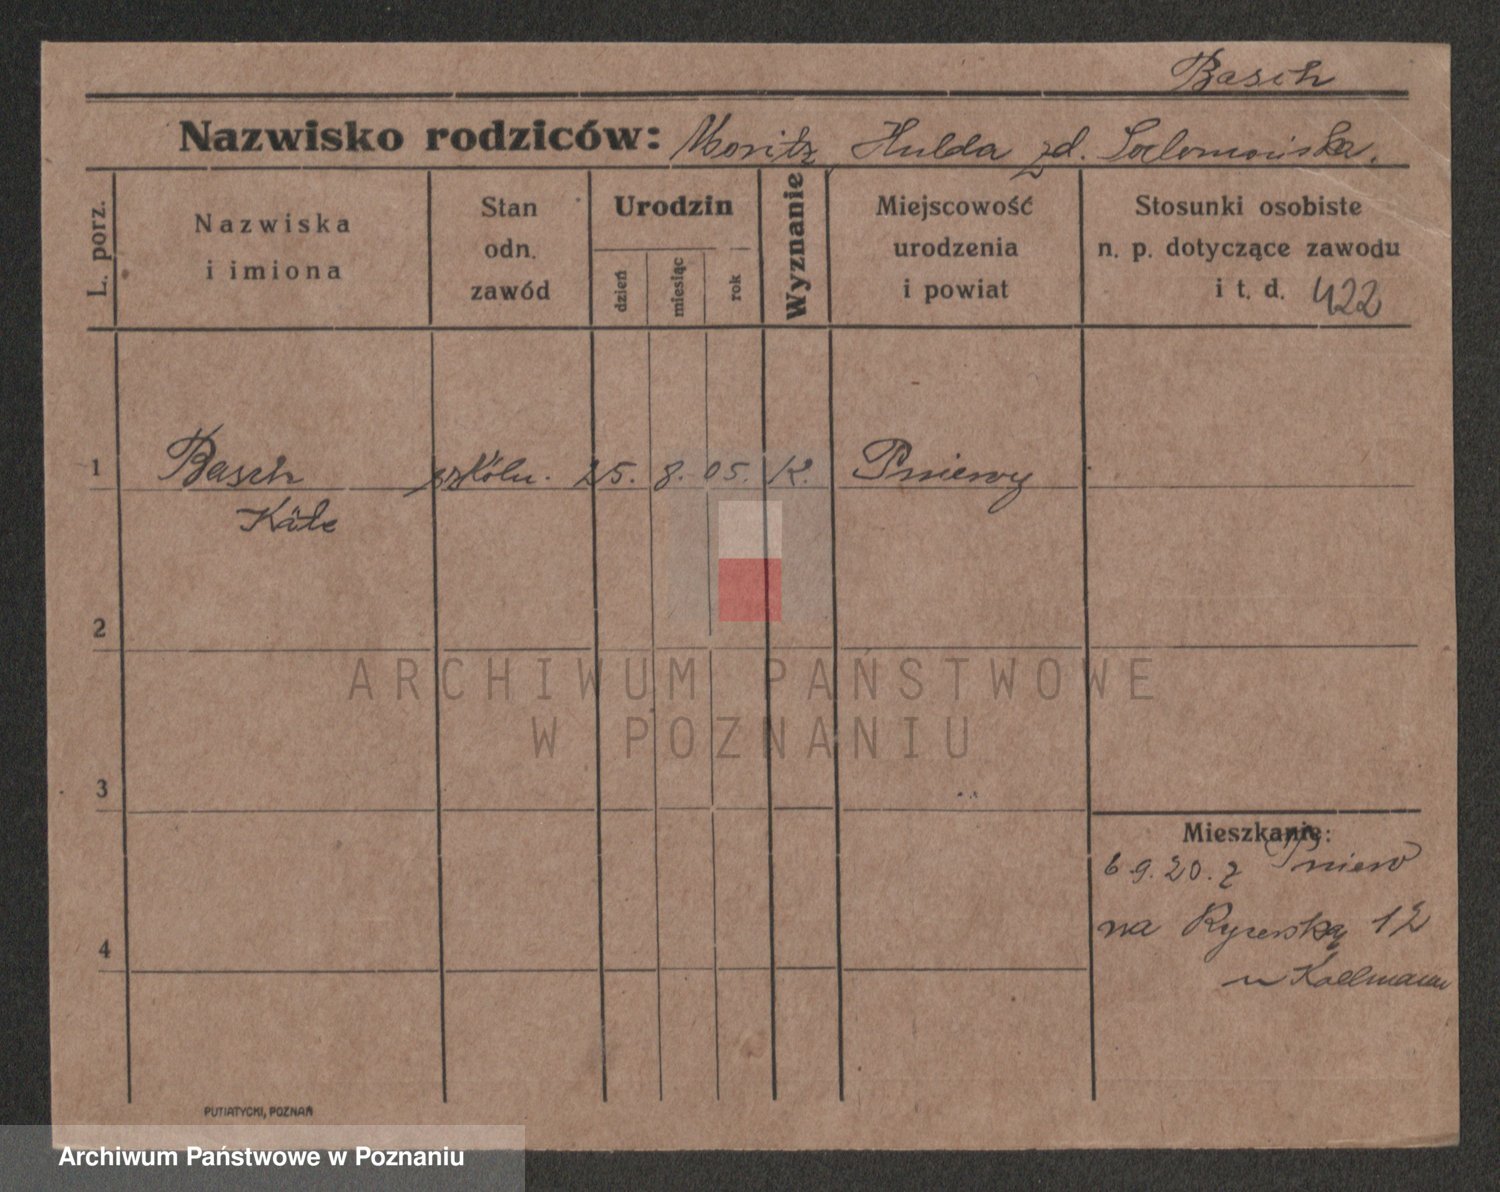 Basch
Nazwisko rodziców: Moritz Hulda zd. Salomońska.
L. porz.
Nazwiska
i imiona
Stan
odn.
zawód
Urodzin
dzień
miesiąc
rok
Wyznanie
Miejscowość
urodzenia
i powiat
Stosunki osobiste
n. p. dotyczące zawodu
i t. d. 422
1 Basch 25. 8. 05. Pniewy
Käte
2
ARCHIWUM PAŃSTWOWE
W POZNANIU
3
Mieszkanie:
6.9.20. z Pniew
na Rycerską 12
u Kallmann
4
PUTIATYCKI, POZNAŃ
Archiwum Państwowe w Poznaniu